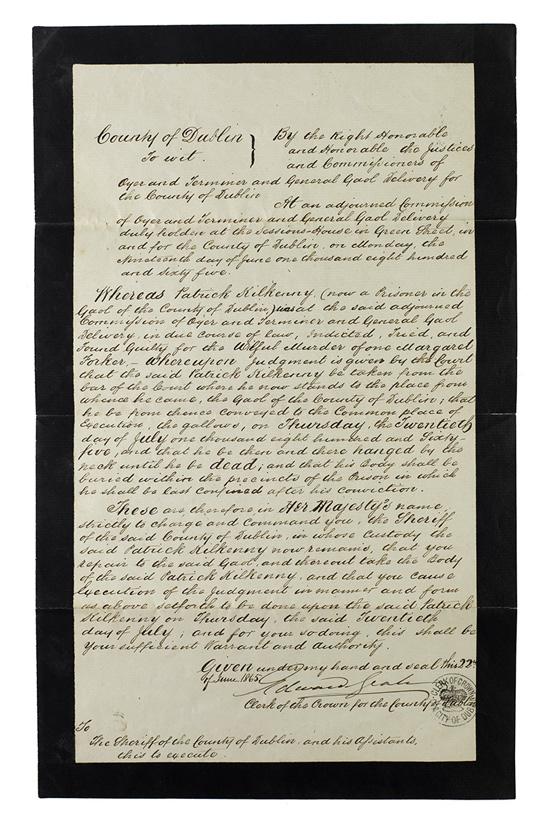 County of Dublin } By the Right Honorable
To wit. and Honorable the Justices
and Commissioners of
Oyer and Terminer and General Gaol Delivery for
the County of Dublin
At an adjourned Commission
of Oyer and Terminer and General Gaol Delivery
duly holden at the Sessions-House in Green Street, in
and for the County of Dublin, on Monday, the
Nineteenth day of June one thousand eight hundred
and sixty five.
Whereas Patrick Kilkenny, (now a Prisoner in the
Gaol of the County of Dublin) was at the said adjourned
Commission of Oyer and Terminer and General Gaol
Delivery, in due course of law, Indicted, Tried, and
found Guilty for the Wilful Murder of one Margaret
Farker,- Whereupon Judgment is given by the Court
that the said Patrick Kilkenny be taken from the
bar of the Court where he now stands to the place from
whence he came, the Gaol of the County of Dublin; that
he be from thence conveyed to the Common place of
Execution, the gallows, on Thursday, the Twentieth
day of July one thousand eight hundred and Sixty-
five, and that he be then and there hanged by the
neck until he be dead; and that his Body shall be
buried within the precincts of the Prison in which
he shall be last confined after his conviction.
These are, therefore, in Her Majesty's name,
strictly to charge and Command you, the Sheriff
of the said County of Dublin, in whose custody the
said Patrick Kilkenny now remains, that you
repair to the said Gaol, and thereout take the Body
of the said Patrick Kilkenny, and that you cause
Execution of the Judgment in manner and form
as above setforth to be done upon the said Patrick
Kilkenny on Thursday, the said Twentieth
day of July; and for your so doing, this shall be
your sufficient Warrant and Authority.
Given under my hand and seal this 22nd
of June 1865
Edward
Clerk of the Crown for the County of Dublin
CLERK OF CROWN
CITY OF DUBLIN
To
The Sheriff of the County of Dublin, and his Assistants,
this to execute.